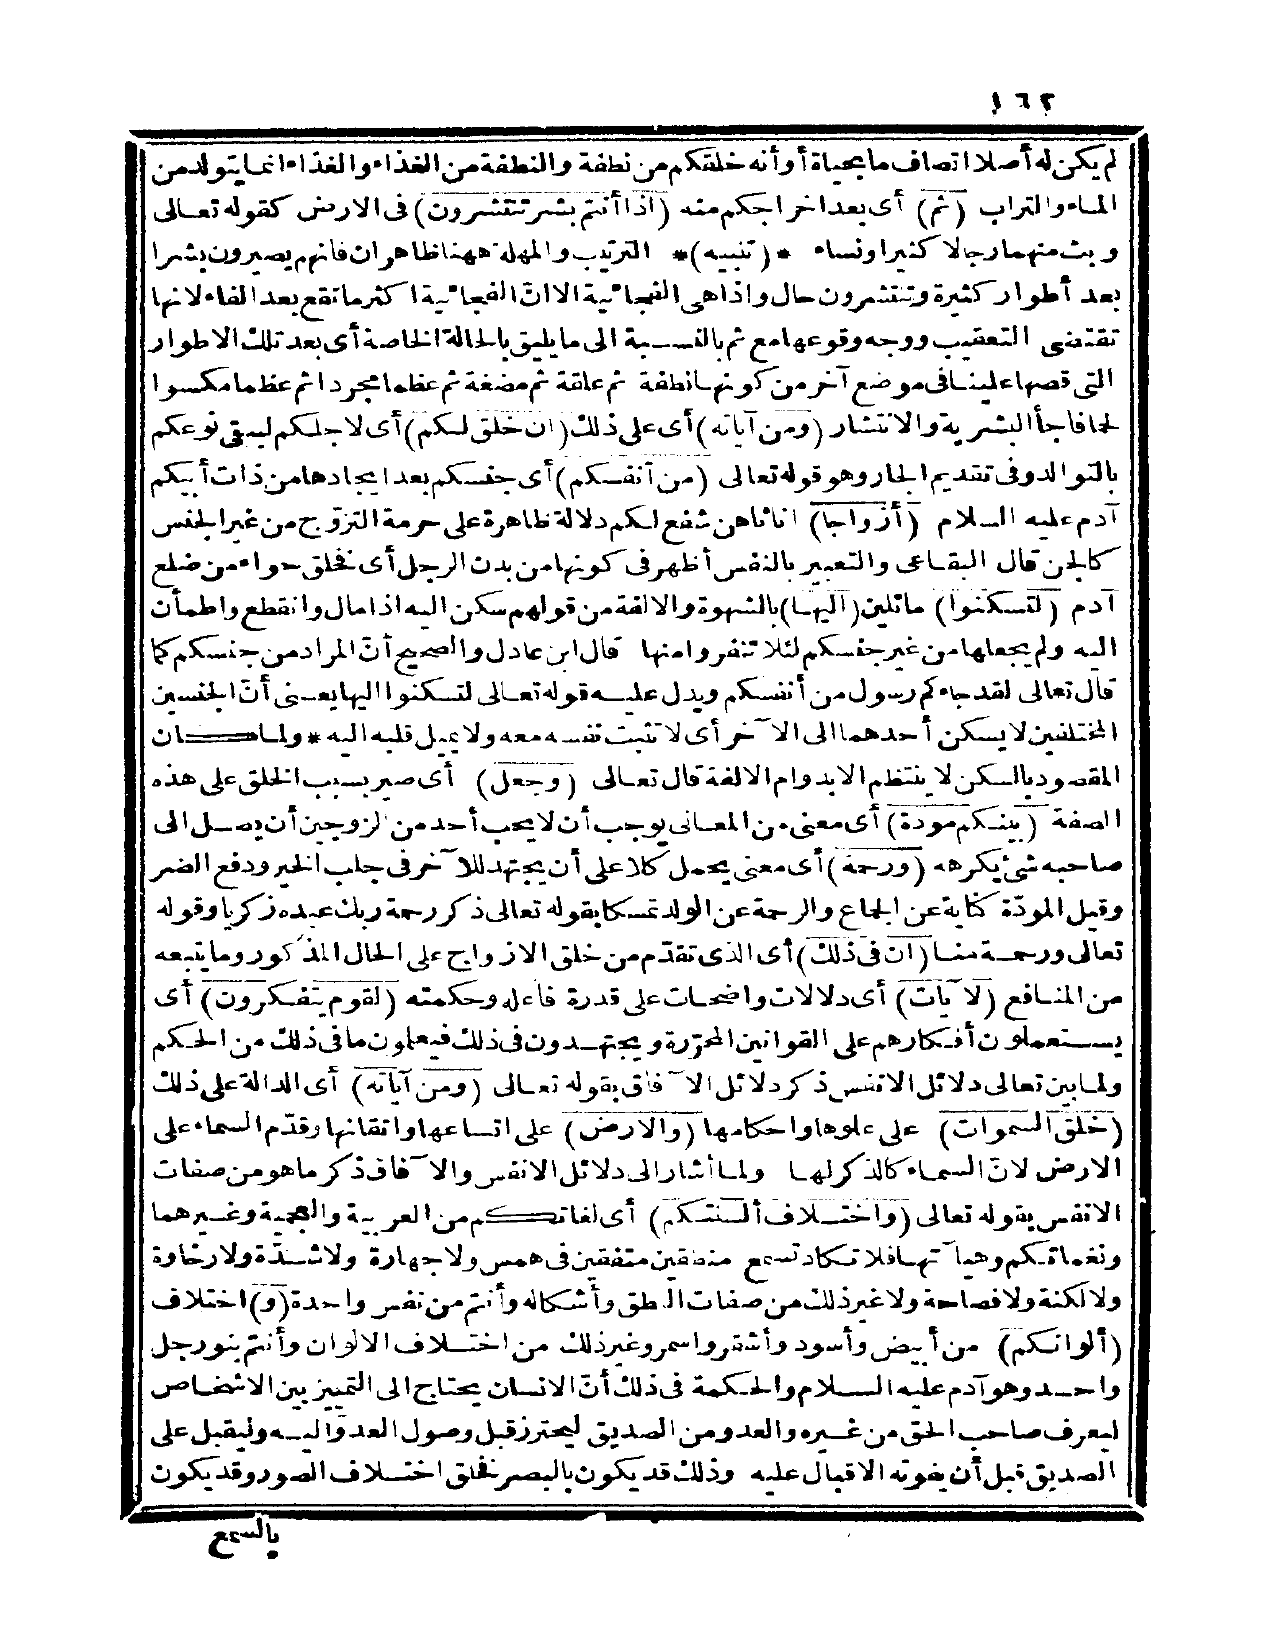 ١٦٢
لم يكن له أصلا اتصاف ما بحياة أو أنه خلقكم من نطفة والنطفة من الغذاء والغذاء انما يتولد من
الماء والتراب (ثم) أى بعد اخراجكم منه (اذا أنتم بشر تنتشرون) فى الارض كقوله تعالى
وبث منهما رجالا كثيرا ونساء *(تنبيه)* الترتيب والمهلة ههنا ظاهران فانهم يصيرون بشرا
بعد أطوار كثيرة وتنتشرون حال واذا هى الفجائية الا انّ الفجائية اكثر ما تقع بعد الفاء لانها
تقتضى التعقيب ووجه وقوعها مع ثم بالنسبة الى ما يليق بالحالة الخاصة أى بعد تلك الاطوار
التى قصها علينا فى موضع آخر من كونها نطفة ثم علقة ثم مضغة ثم عظما مجردا ثم عظما مكسوا
لحا فاجأ البشرية والانتشار (ومن آياته) أى على ذلك (ان خلق لكم) أى لاجلكم ليبقى نوعكم
بالتوالد وفى تقديم الجار وهو قوله تعالى (من أنفسكم) أى جنسكم بعد ايجادها من ذات أبيكم
آدم عليه السلام (أزواجا) اناثا هن شفع لكم دلالة ظاهرة على حرمة التزوّج من غير الجنس
كالجن قال البقاعى والتعبير بالنفس أظهر فى كونها من بدن الرجل أى فخلق حواء من ضلع
آدم (لتسكنوا) مائلين (اليها) بالشهوة والالفة من قولهم سكن اليه اذا مال وانقطع واطمأن
اليه ولم يجعلها من غير جنسكم لئلا تنفروا منها قال ابن عادل والصحيح أنّ المراد من جنسكم كما
قال تعالى لقد جاءكم رسول من أنفسكم ويدل عليه قوله تعالى لتسكنوا اليها يعنى أنّ الجنسين
المختلفين لا يسكن أحدهما الى الآخر أى لا تثبت نفسه معه ولا يميل قلبه اليه * ولما كان
المقصود بالسكن لا ينتظم الا بدوام الالفة قال تعالى (وجعل) أى صير بسبب الخلق على هذه
الصفة (بينكم مودة) أى معنى من المعانى يوجب أن لا يحب أحد من الزوجين أن يصل الى
صاحبه شئ يكرهه (ورحمة) أى معنى يحمل كلا على أن يجتهد للآخر فى جلب الخير ودفع الضر
وقيل المودّة كناية عن الجماع والرحمة عن الولد تمسكا بقوله تعالى ذكر رحمة ربك عبده زكريا وقوله
تعالى ورحمة منا (ان فى ذلك) أى الذى تقدّم من خلق الازواج على الحال المذكور وما يتبعه
من المنافع (لآيات) أى دلالات واضحات على قدرة فاعله وحكمته (لقوم يتفكرون) أى
يستعملون أفكارهم على القوانين المحرّرة ويجتهدون فى ذلك فيعلون ما فى ذلك من الحكم
ولما بين تعالى دلائل الانفس ذكر دلائل الآفاق بقوله تعالى (ومن آياته) أى الدالة على ذلك
(خلق السموات) على علوها واحكامها (والارض) على اتساعها واتقانها وقدّم السماء على
الارض لانّ السماء كالذكر لها ولما أشار الى دلائل الانفس والآفاق ذكر ما هو من صفات
الانفس بقوله تعالى (واختلاف ألسنتكم) أى لغاتكم من العربية والعجمية وغيرهما
ونغماتكم وهيآتها فلا تكاد تسمع منطقين متفقين فى همس ولا جهارة ولا شدّة ولا رخاوة
ولا لكنة ولا فصاحة ولا غير ذلك من صفات النطق وأشكاله وأنتم من نفس واحدة (و) اختلاف
(ألوانكم) من أبيض وأسود وأشقر واسمر وغير ذلك من اختلاف الالوان وأنتم بنو رجل
واحد وهو آدم عليه السلام والحكمة فى ذلك أنّ الانسان يحتاج الى التمييز بين الاشخاص
ليعرف صاحب الحق من غيره والعدو من الصديق ليحترز قبل وصول العدوّ اليه وليقبل على
الصديق قبل أن يفوته الاقبال عليه وذلك قد يكون بالبصر فخلق اختلاف الصور وقد يكون
بالسمع